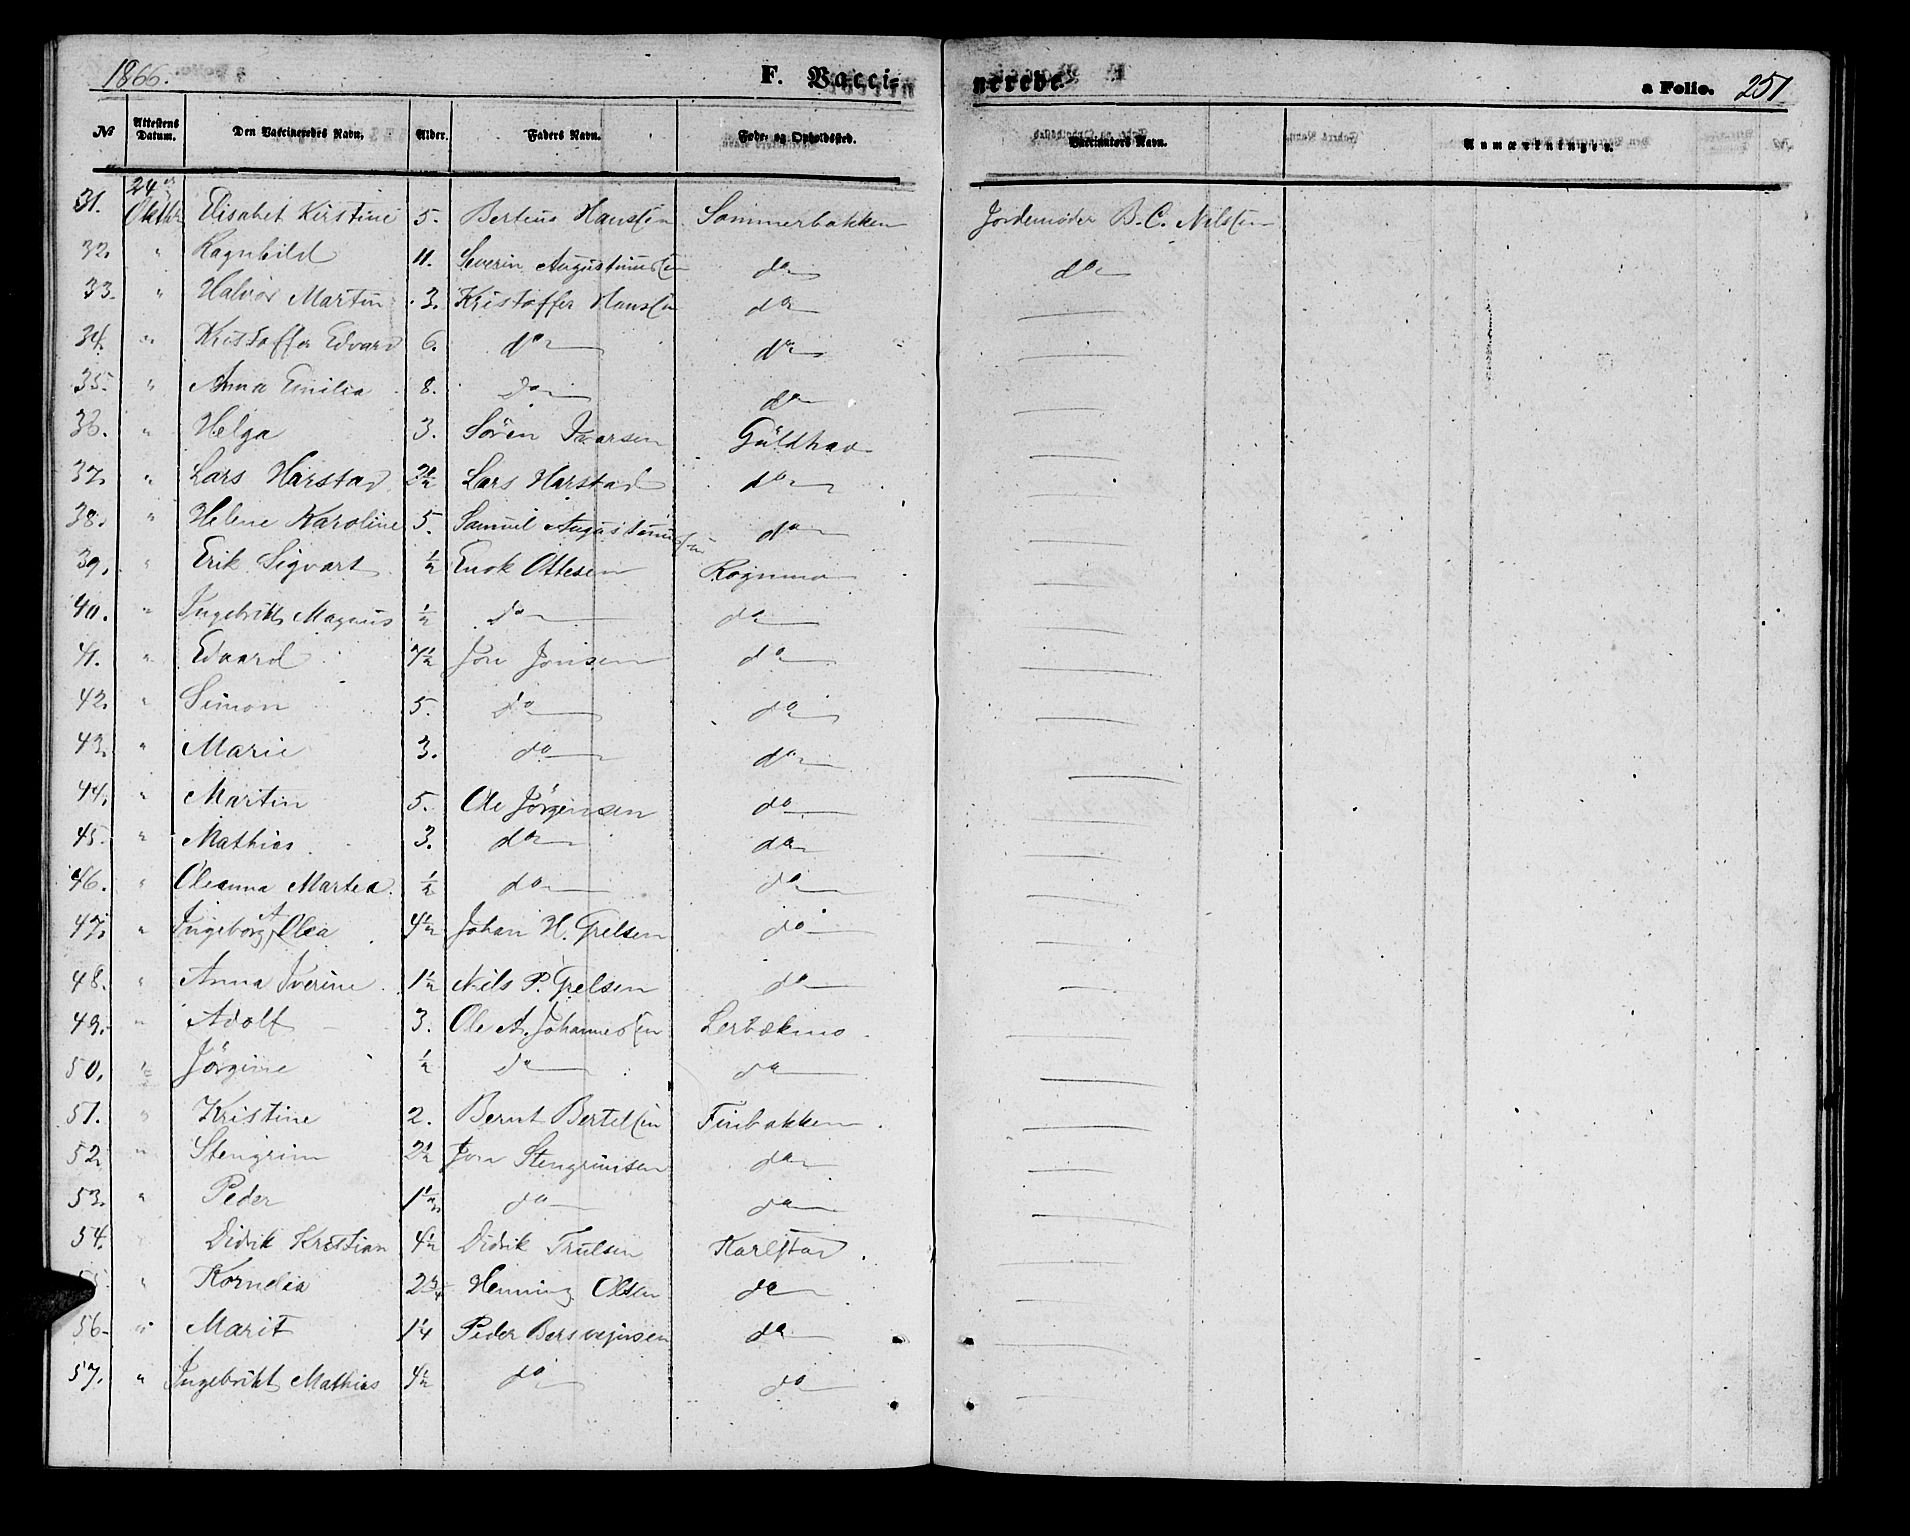 1866. F. Vaccinerede. a Folio. 251
№ Attestens Datum. Den Vaccineredes Navn. Alder. Faders Navn. Føde- og Opholdssted. Vaccinators Navn. Anmærkninger.
31. 24de Oktbr Elisabet Kirstine 5. Berteus Hansen Sommerbakken Jordemoder B. C. Nilsen
32. " Ragnhild 11. Severin Augustinusen do do
33. " Halvor Martin 3. Kristoffer Hansen do —
34. " Kristoffer Edvard 6. do do —
35. " Anna Emilia 8. do do —
36. " Helga 3. Sören Ivarsen Guldhav —
37. " Lars Harstad 2½ Lars Harstad do —
38. " Helene Karoline 5. Samuel Augustinusen do —
39. " Erik Sigvart ½ Enok Ottesen Rognmo —
40. " Ingebrikt Magnus ½ do do —
41. " Edvard 7½ Jon Jonsen do —
42. " Simon 5. do do —
43. " Marie 3. do do —
44. " Martin 5. Ole Jörgensen do —
45. " Mathias 3. do do —
46. " Oleanna Martea ½ do do —
47. " Ingeborg A Olea 4½ Johan H. Grelsen do —
48. " Anna Iverine 1½ Nils P. Grelsen do —
49. " Adolf 3. Ole A. Johannesen Lerbekmo —
50. " Jörgine ½ do do —
51. " Kristine 2. Bernt Bertelsen Finbakken —
52 " Stengrim 2½ Jon Stengrimsen do —
53. " Peder do do —
54. " Didrik Kristian 4½ Didrik Trulsen Karlstad —
" Kornelia 2¾ Henning Olsen do —
56 " Marit 14 Peder Bersvejnsen do —
57. " Ingebrikt Mathias 4½ do do —